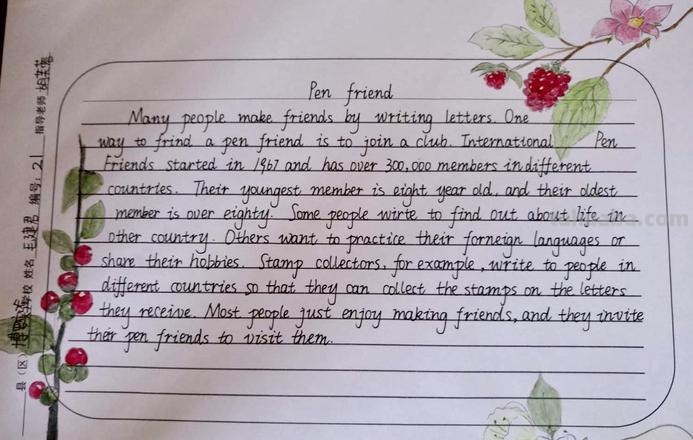 Pen friend
Many people make friends by writing letters. One
way to frind a pen friend is to join a club. International Pen
Friends started in 1967 and has over 300,000 members in different
countries. Their youngest member is eight year old, and their oldest
member is over eighty. Some people wirte to find out about life in
other country. Others want to practice their forneign languages or
share their hobbies. Stamp collectors, for example, write to people in
different countries so that they can collect the stamps on the letters
they receive. Most people just enjoy making friends, and they invite
their pen friends to visit them.
县(区) 学校 姓名 编号: 21 指导老师